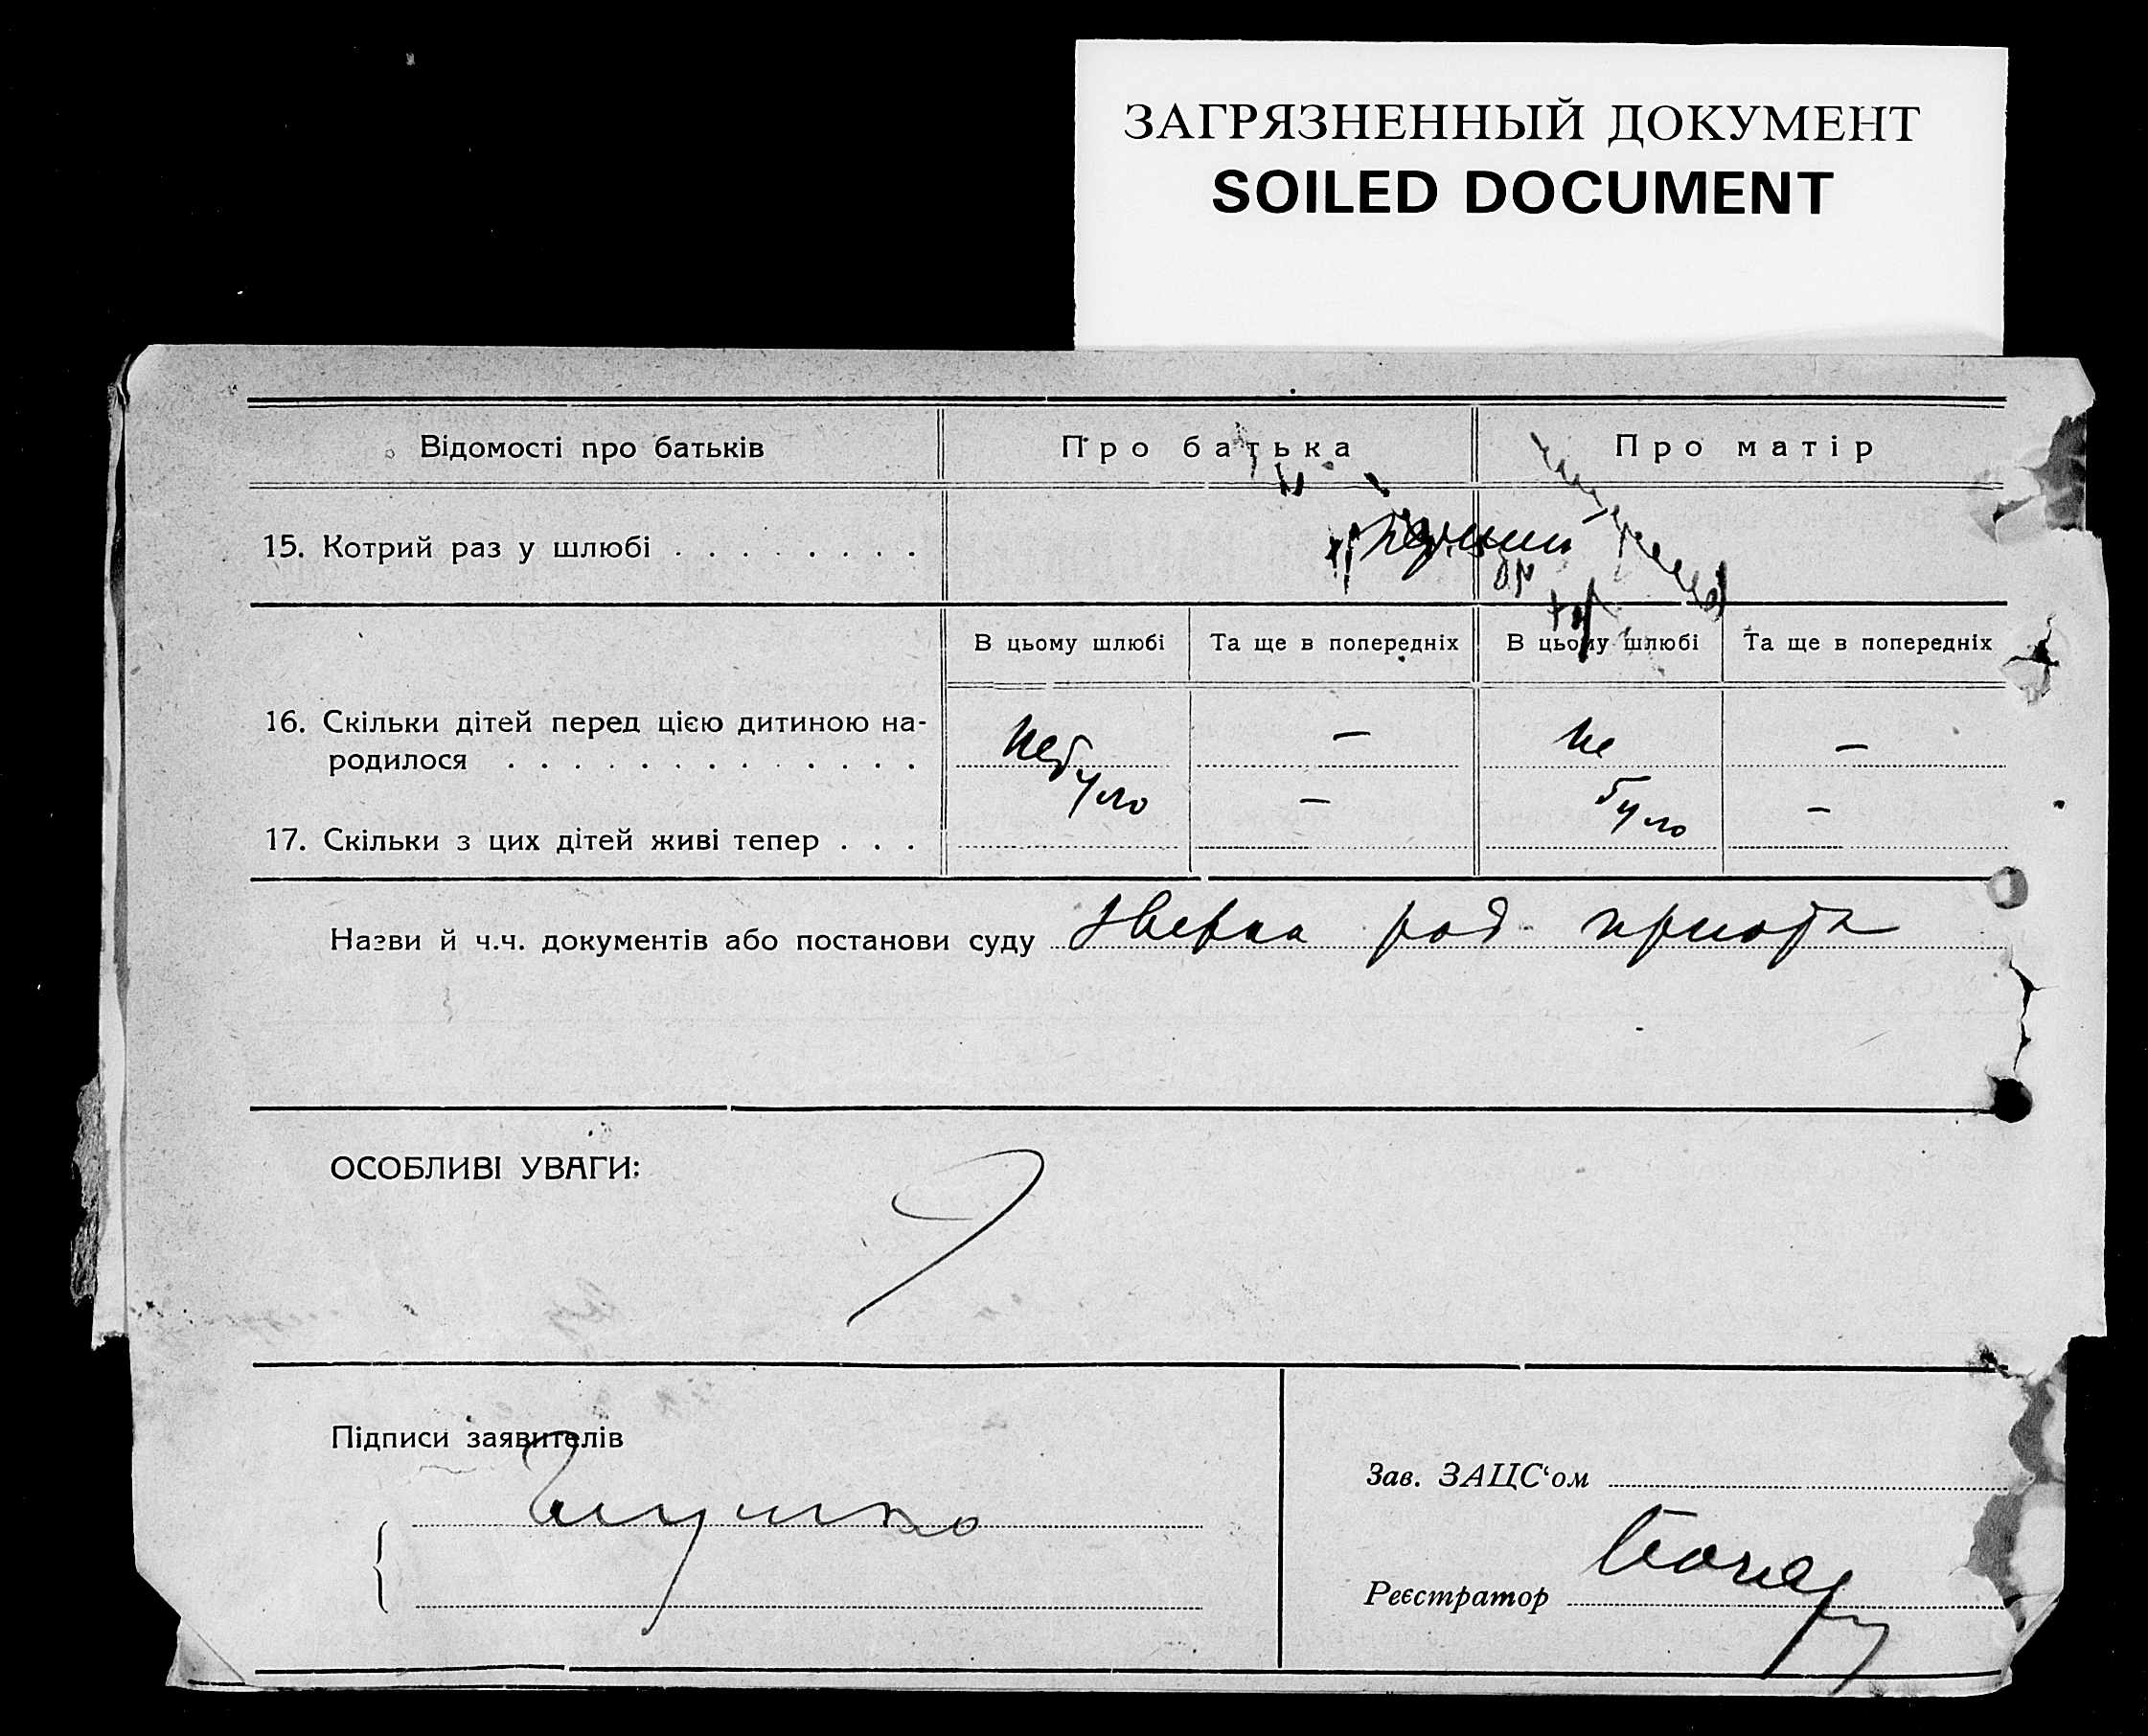 ЗАГРЯЗНЕННЫЙ ДОКУМЕНТ
SOILED DOCUMENT
Відомості про батьків
Про батька
Про матір
15. Котрий раз у шлюбі . . . . . . . .
В цьому шлюбі
Та ще в попередніх
В цьому шлюбі
Та ще в попередніх
16. Скільки дітей перед цією дитиною на-
родилося . . . . . . . . . . . . .
не було
—
не
було
—
17. Скільки з цих дітей живі тепер . . .
—
—
Назви й ч.ч. документів або постанови суду
ОСОБЛИВІ УВАГИ:
Підписи заявителів
Зав. ЗАЦС‘ом
Реєстратор